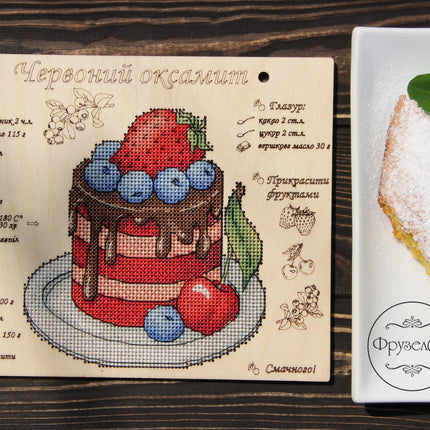 Червоний оксамит
ник 2 ч.л.
115 г
180 С°
30 хв
00 г
150 г
ити
Глазур:
какао 2 ст.л.
цукор 2 ст.л.
вершкове масло 30 г
Прикрасити
фруктами
Смачного!
Фрузел